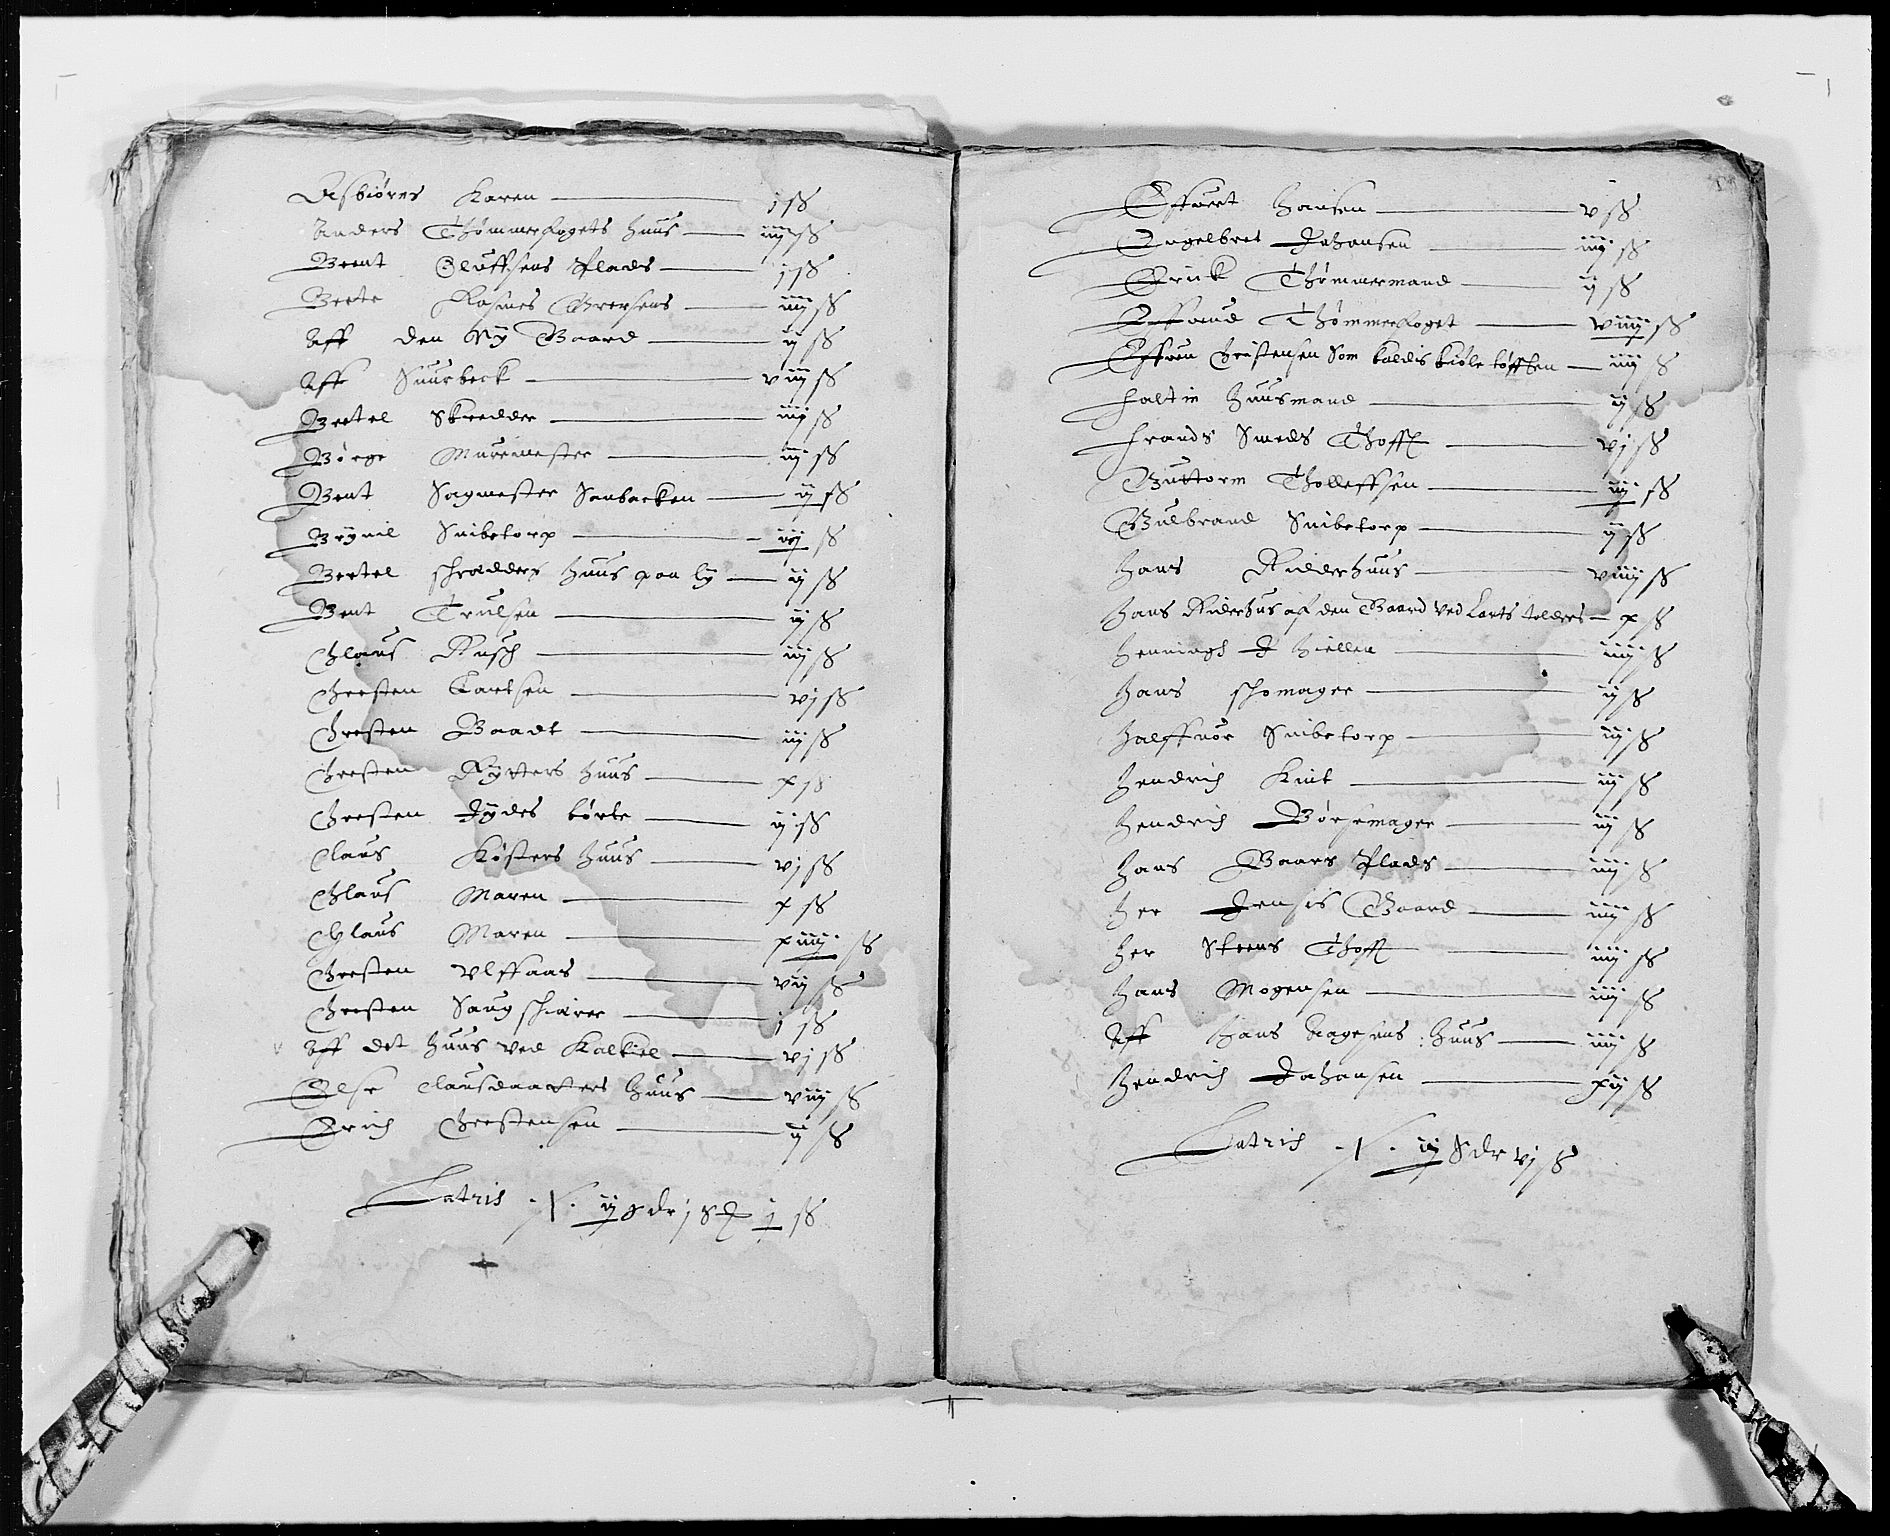 Asbiørns Karen — j ß
Anders Thømmerfogets huus — iiij ß
Brent Oluffsens Plads — j ß
Brete Rasmus Brersens — iiij ß
Aff den Ny Gaard — ij ß
Aff Suurbeck — viij ß
Bertel Skredder — iiij ß
Børge Muremester — iij ß
Bent Sagmester Sanbacken — ij ß
Brynil Snibetorp — iij ß
Bertel schrædders huus paa ly — ij ß
Bent Trulsen — ij ß
Chlaus Rusch — iiij ß
Chresten Lartsen — vj ß
Chresten Baadt — iij ß
Chresten Rytters huus — x ß
Chresten Jydes børte — ij ß
Claus Kösters huus — vj ß
Chlaus Maren — x ß
Chlaus Maren — xiiij ß
Chresten Ulffaas — vij ß
Chresten Saugschiærer — j ß
Aff det huus ved Kalkiel — vj ß
Else Clausdaatters huus — viij ß
Erich Chrestensen — ij ß
Latris ij Sdr j ß
Effuert Hansen — v ß
Engelbret Johansen — iiij ß
Erick Thømmermand — ij ß
Effuend Thømmerfoget — viiij ß
Effuen Christensen som kaldis kiøle tøfften — iiij ß
Faltin Huusmand — ij ß
Frands Smeds Thofft — vj ß
Guttorm Tholleffsen — iij ß
Gulbrand Snibetorp — ij ß
Hans Ridderhuus — viiij ß
Hans Riderhus af den Gaard ved Larts tolders — x ß
Henningh J Hiellen — iiij ß
Hans schomager — ij ß
Halffuor Snibetorp — iij ß
Hendrich Knit — iij ß
Hendrich Børsemager — iij ß
Hans Baars Plads — iiij ß
Her Jensis Gaard — iiij ß
Her Steens Thofft — iiij ß
Hans Mogensen — iiij ß
Aff Hans Aagesens huus — iiij ß
Hendrich Johansen — xij ß
Latris iij Sdr vj ß